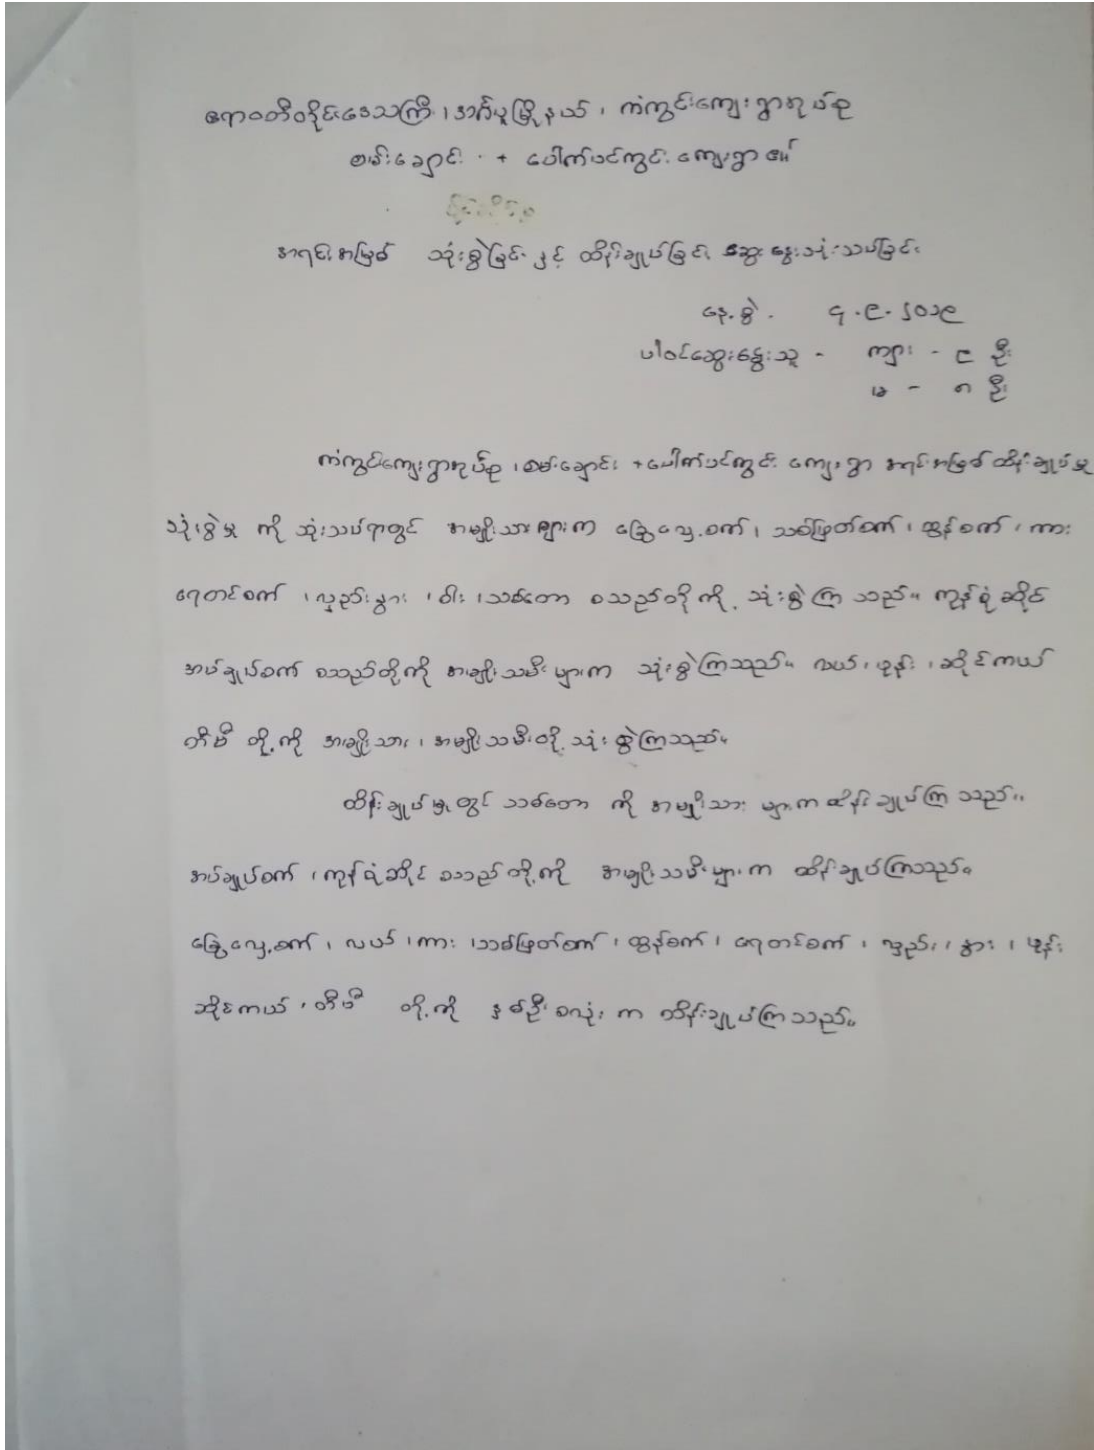 ဧရာဝတီတိုင်းဒေသကြီး၊ အင်္ဂပူမြို့နယ်၊ ကံကွင်းကျေးရွာအုပ်စု
စမ်းချောင်း + ပေါက်ပင်ကွင်း ကျေးရွာ ၏
အရင်းအမြစ် သုံးစွဲခြင်း နှင့် ထိန်းချုပ်ခြင်း ဆွေးနွေးသုံးသပ်ခြင်း
နေ့စွဲ - ၄.၉.၂၀၁၉
ပါဝင်ဆွေးနွေးသူ - ကျား - ၉ ဦး
မ - ၈ ဦး
ကံကွင်းကျေးရွာအုပ်စု ၊ စမ်းချောင်း + ပေါက်ပင်ကွင်း ကျေးရွာ အရင်းအမြစ် ထိန်းချုပ်မှု
သုံးစွဲမှု ကို သုံးသပ်ရာတွင် အမျိုးသားများက ခြွေလှေ့စက် ၊ သစ်ဖြတ်စက် ၊ ထွန်စက် ၊ ကား
ရေတင်စက် ၊ လှည်းနွား ၊ ဝါး ၊ သစ်တော စသည်တို့ကို သုံးစွဲကြသည်။ ကုန်စုံဆိုင်
အပ်ချုပ်စက် စသည်တို့ကို အမျိုးသမီးများက သုံးစွဲကြသည်။ လယ် ၊ ဖုန်း ၊ ဆိုင်ကယ်
တီဗီ တို့ကို အမျိုးသား ၊ အမျိုးသမီးတို့ သုံးစွဲကြသည်။
ထိန်းချုပ်မှုတွင် သစ်တော ကို အမျိုးသား များက ထိန်းချုပ်ကြသည်။
အပ်ချုပ်စက် ၊ ကုန်စုံဆိုင် စသည်တို့ကို အမျိုးသမီးများက ထိန်းချုပ်ကြသည်။
ခြွေလှေ့စက် ၊ လယ် ၊ ကား ၊ သစ်ဖြတ်စက် ၊ ထွန်စက် ၊ ရေတင်စက် ၊ လှည်း ၊ နွား ၊ ဖုန်း
ဆိုင်ကယ် ၊ တီဗီ တို့ကို နှစ်ဦးစလုံး က ထိန်းချုပ်ကြသည်။